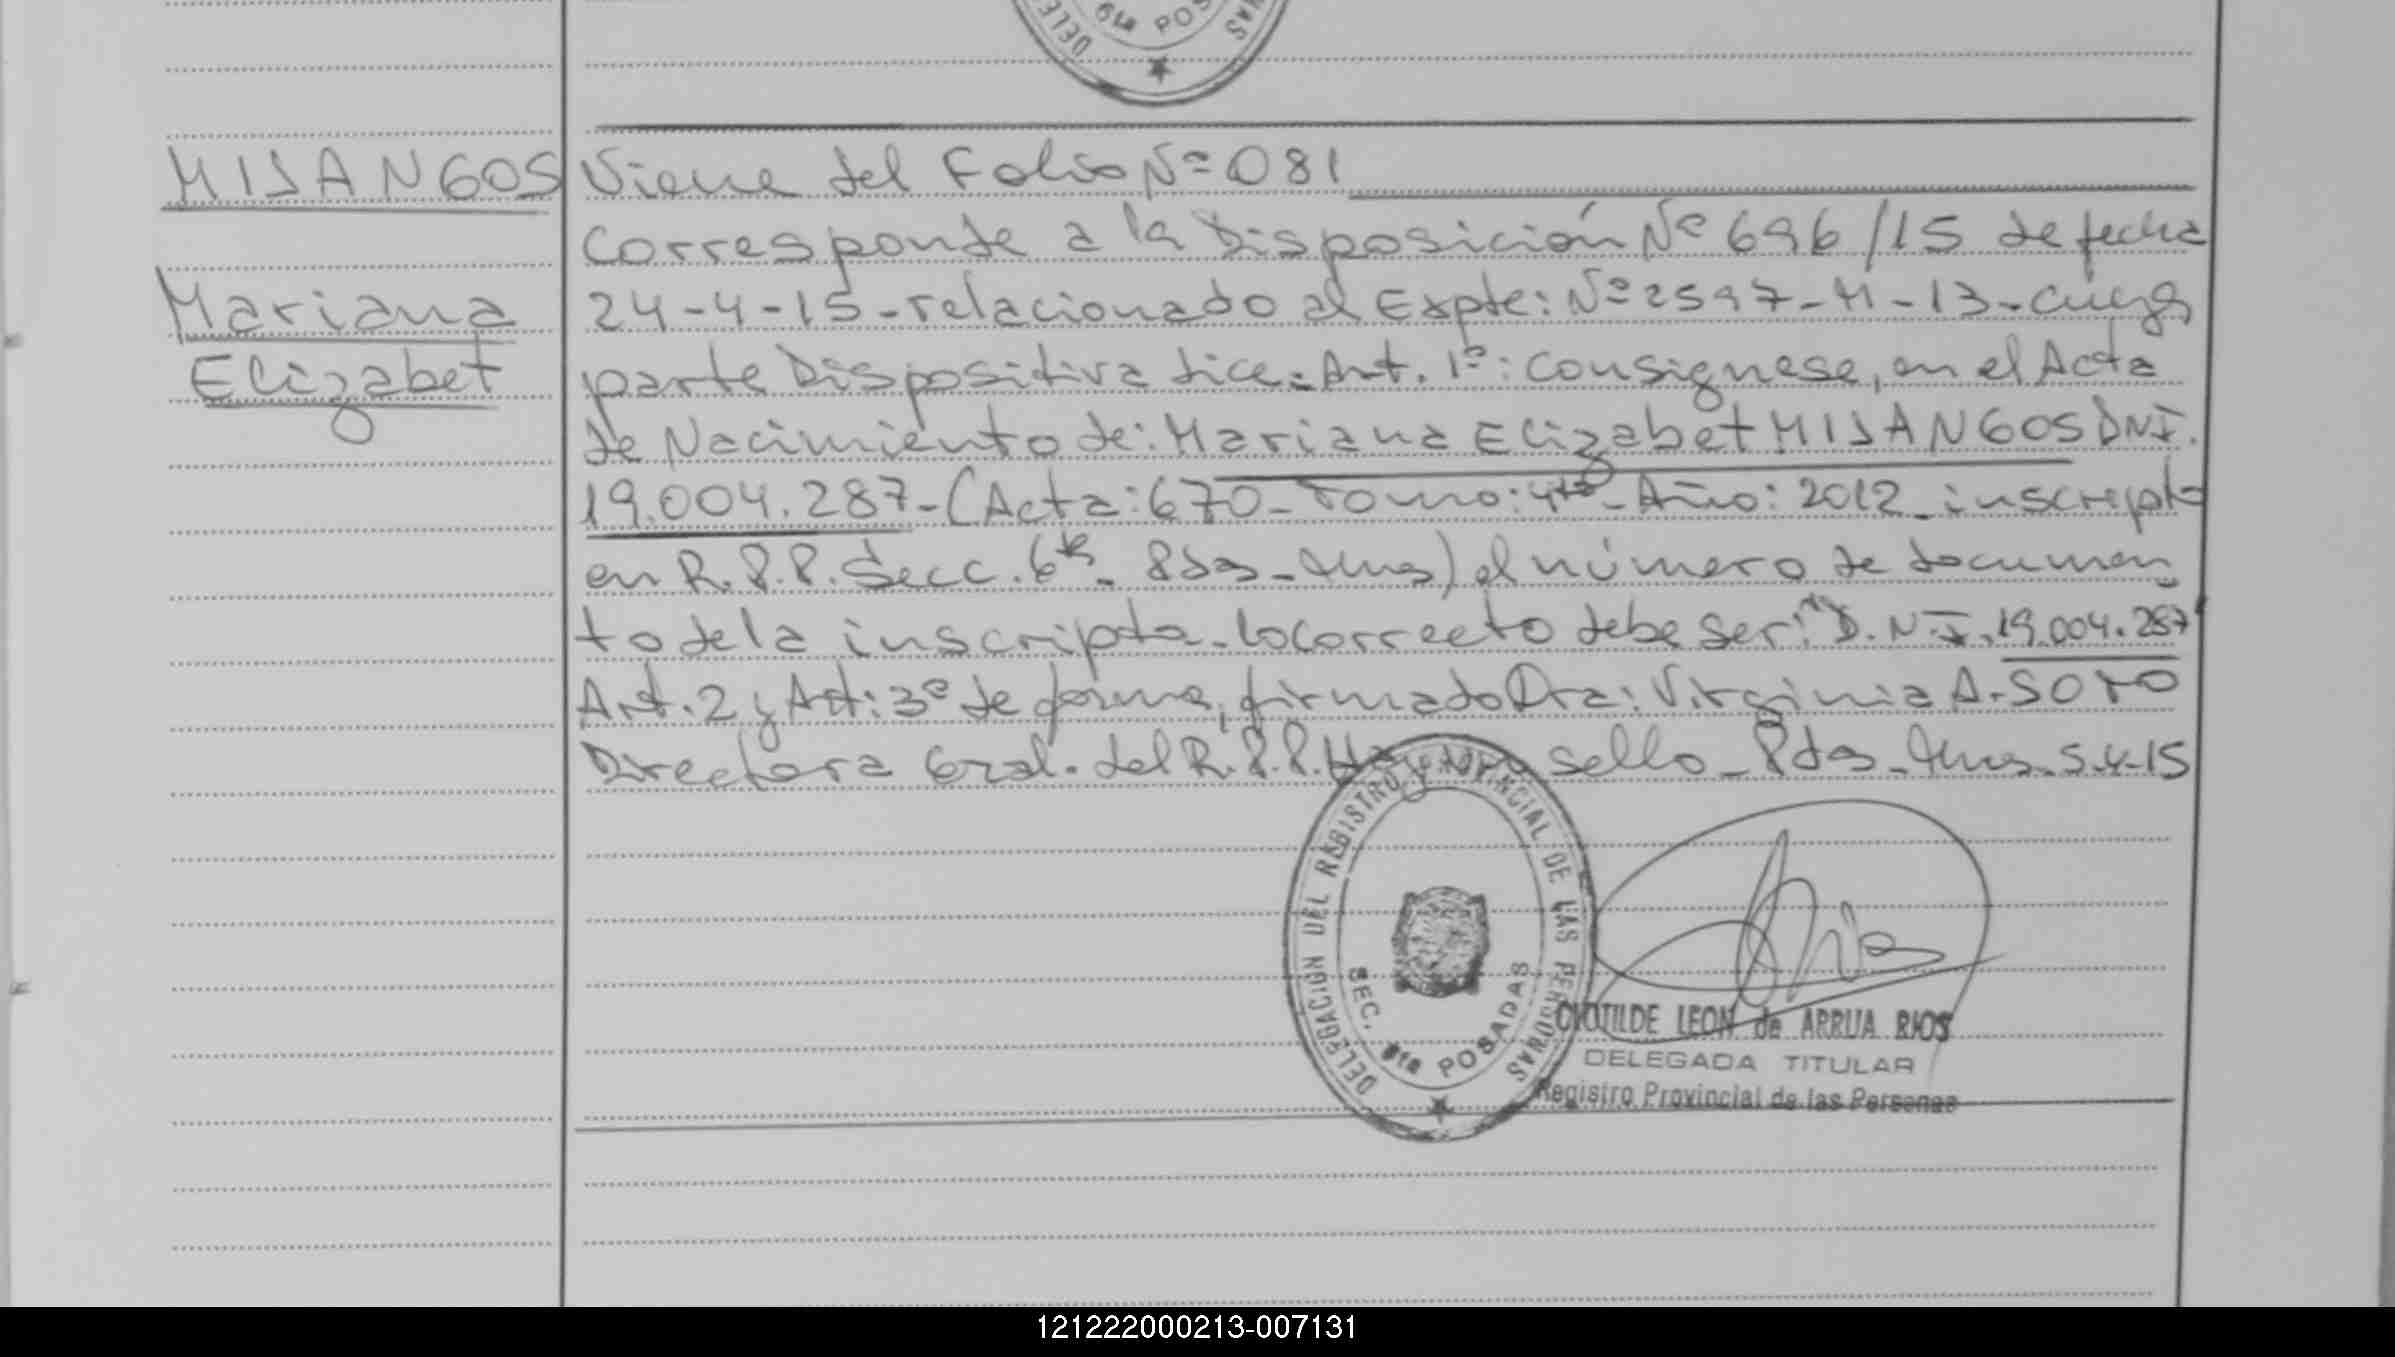 6ta POS
MIJANGOS
Mariana
Elizabet
Viene del Folio Nº 081
Corresponde a la Disposición Nº 696/15 de fecha
24-4-15-relacionado al Expte: Nº 2597-M-13-cuya
parte Dispositiva dice: Art. 1º: Consignese, en el Acta
de Nacimiento de: Mariana Elizabet MIJANGOS DNI.
19.004.287-(Acta: 670-Tomo: 4to-Año: 2012-inscripta
en R.P.P. Secc. 6ta- Pdas-Mnes) el número de documen
to de la inscripta-lo correcto debe ser: "D.N.I. 19.004.287
Art. 2 y Art: 3º de forma, firmado Dra: Virginia A. SOTO
Directora Gral. del R.P.P. Hay un sello-Pdas-Mnes-5-4-15
DELEGACION DEL REGISTRO PROVINCIAL DE LAS PERSONAS
SEC. 6ta POSADAS
CLOTILDE LEON de ARRUA RIOS
DELEGADA TITULAR
Registro Provincial de las Personas
121222000213-007131